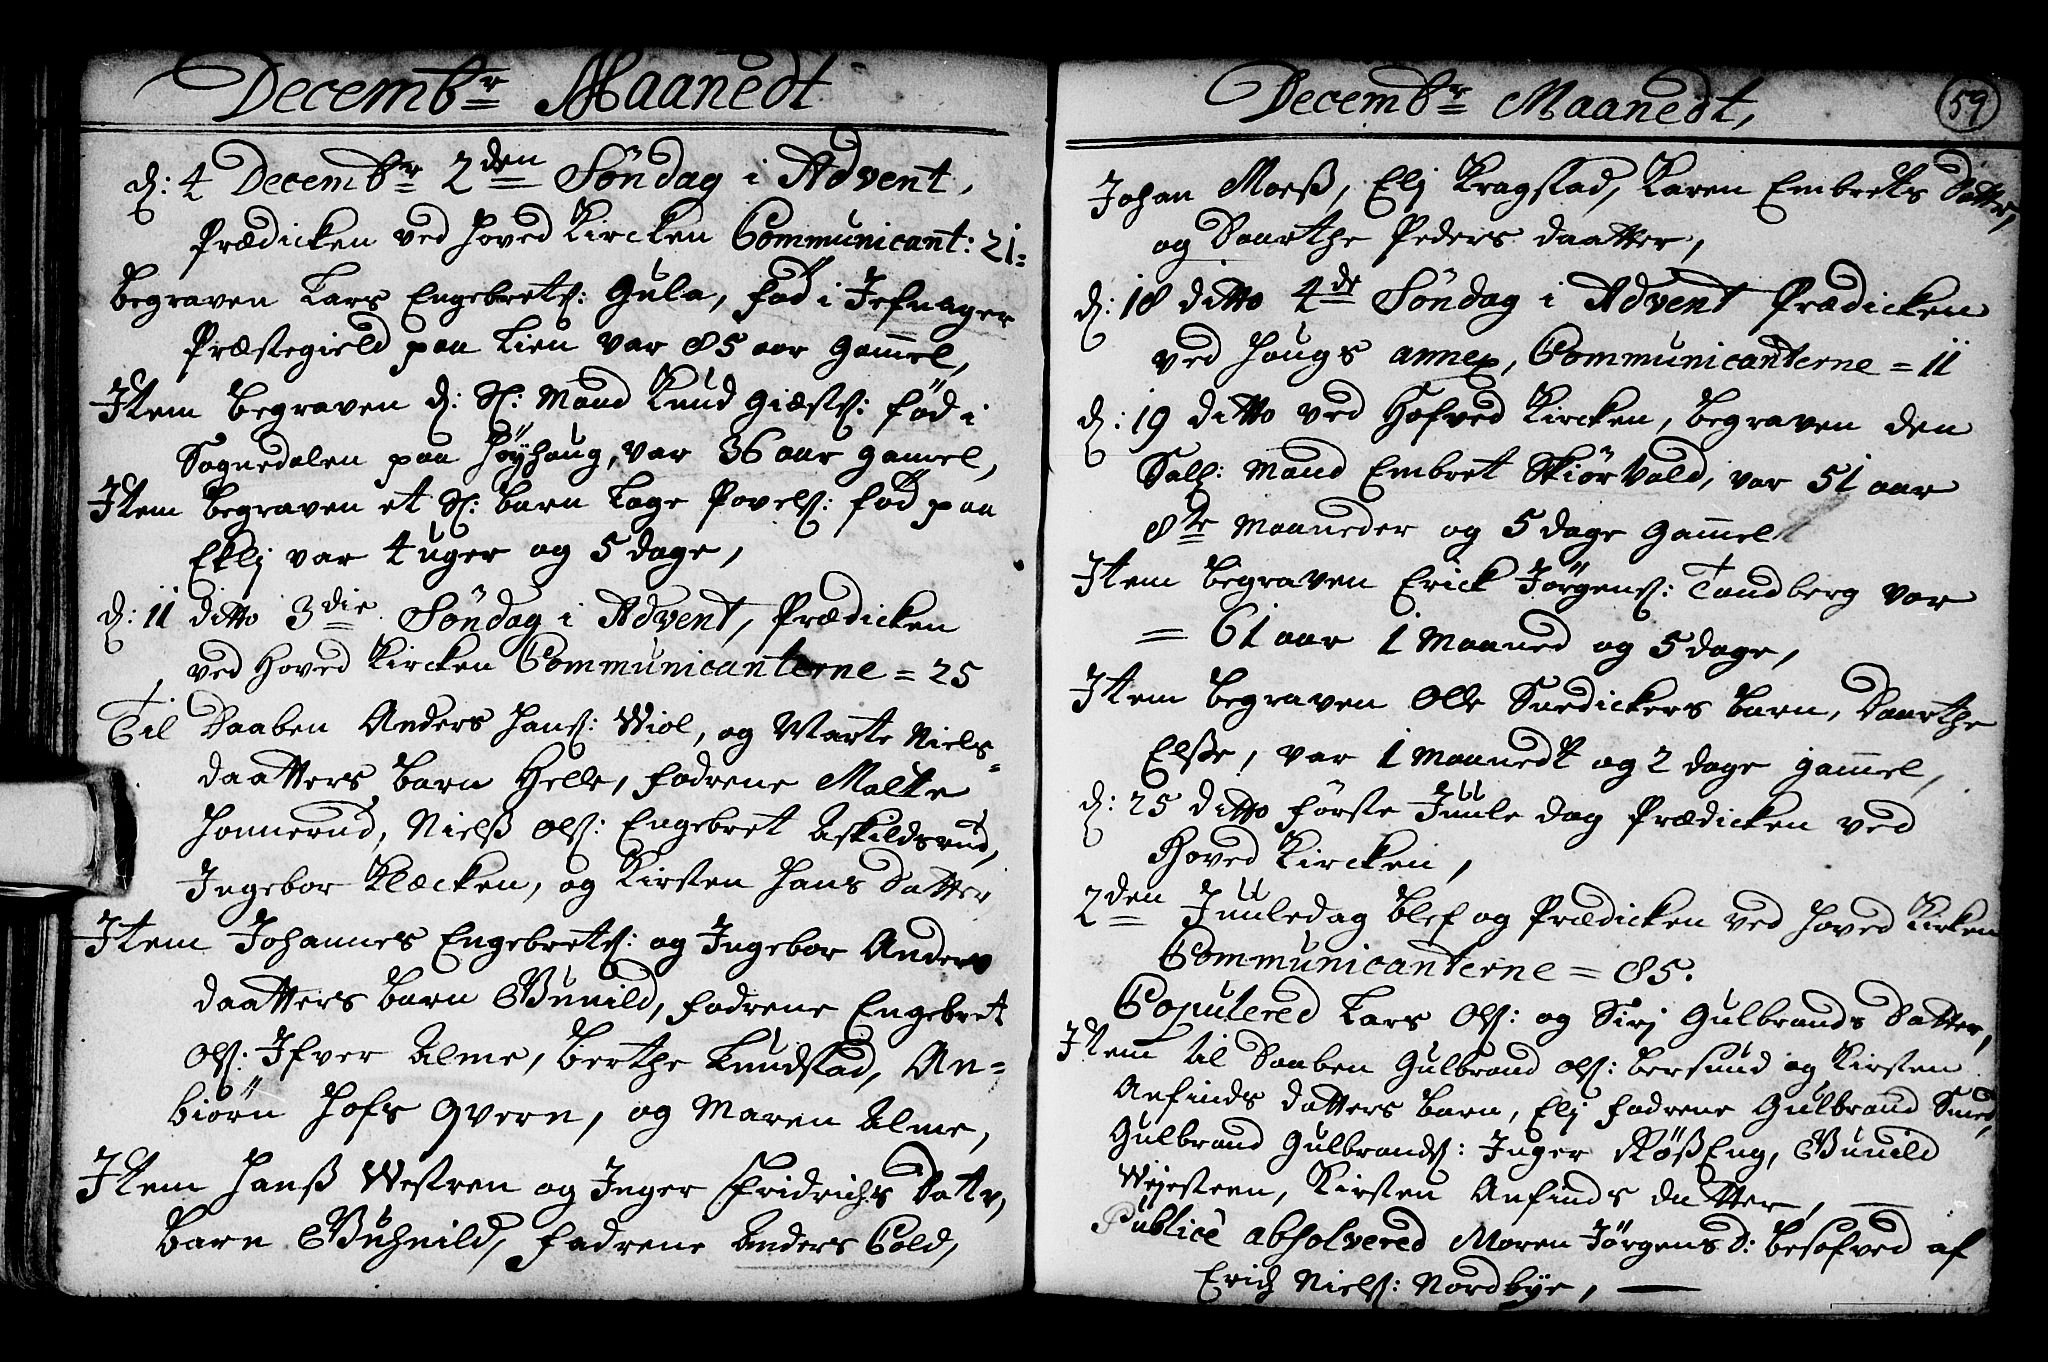 Decembr Maanedt
d: 4 Decembr 2den Söndag i Advent,
Prædicken ved hoved Kircken Communicant: 21=
Begraven Lars Engebretß: Gula, fød i Jefnager
Præstegield paa Lien var 85 aar gam̄el,
Item begraven d: Sl: Mand Knud Giæstß: fød i
Sognedalen paa Höyhaug, var 36 aar gamel,
Item begraven et Sl: barn Lage Povelß: fød paa
Eklj var 4 uger og 5 dage,
d: 11 ditto 3die Söndag i Advent, Prædicken
ved Hoved Kircken Communicanterne = 25
Til Daaben Anders Hanß: Wiol, og Marte Niels=
daatters barn Helle, fadrene Malte
Honnerud, Nielß Olß: Engebret Askildsrud,
Ingebor Klæcken, og Kirsten Hans Datter
Item Johannes Engebretß: og Ingebor Anders
daatters barn Gunild, fadrene Engebret
Olß: Ifver Alme, Berthe Knudstad, An=
biörn Hofs Qvern, og Maren Alme,
Item Hanß Westren og Inger Fridrichs Dattr,
Barn Guhnild, fadrene Anders Cold,
Decembr Maanedt,
59
Johan Moeß, Elj Kragstad, Karen Embrets Datter,
og Daarthe Peders daatter,
d: 18 ditto 4de Söndag i Advent Prædicken
ved Haugs annex, Communicanterne = 11
d: 19 ditto ved Hofved Kircken, begraven den
Sall: Mand Embret Skiörvold, var 51 aar
8te Maaneder og 5 dage gam̄el
Item begraven Erick Jörgenß: Tandberg var
= 61 aar 1 Maaned og 5 dage,
Item begraven Olle Snedickers barn, Daarthe
Elsße, var 1 Maanedt og 2 dage gam̄el,
d: 25 ditto förste Juule dag Prædicken ved
Hoved Kircken,
2den Juuledag blef og Prædicken ved hoved Kirken
Communicanterne = 85.
Copulered Lars Olß: og Sirj Gulbrands Datter,
Item til Daaben Gulbrand Olß: Bersund og Kirsten
Anfinds datters barn, Elj fadrene Gulbrand Smed,
Gulbrand Gulbrandß: Inger Røßeng, Gunild
Wejesteen, Kirsten Anfinds datter,
Publicè absolvered Maren Jörgens d: besofved af
Erich Nielß: Nordbye,